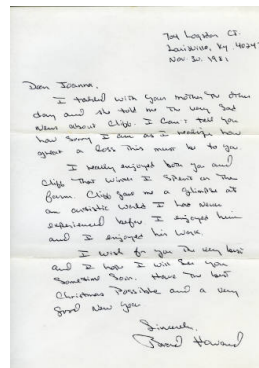 704 Logston Ct.
Louisville, Ky 40243
Nov 30. 1981
Dear Joanne,
I talked with your mother the other
day and she told me the very sad
news about Cliff. I can't tell you
how sorry I am as I realize how
great a loss this must be to you.
I really enjoyed both you and
Cliff that winter I spent on the
farm. Cliff gave me a glimpse at
an artistic world I had never
experienced before. I enjoyed him
and I enjoyed his work.
I wish for you the very best
and I hope I will see you
sometime soon. Have the best
Christmas possible and a very
good New Year
Sincerely,
Howard